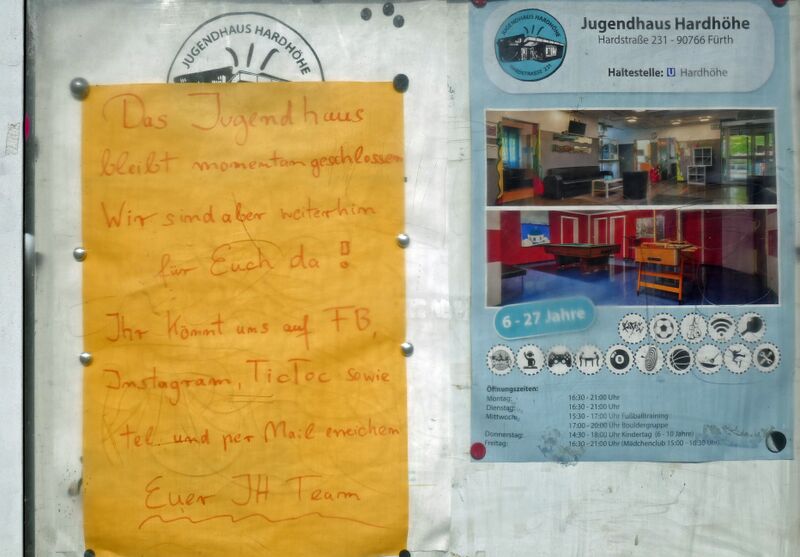 JUGENDHAUS HARDHÖHE
Das Jugendhaus
bleibt momentan geschlossen
Wir sind aber weiterhin
für Euch da!
Ihr könnt uns auf FB,
Instagram, TicToc sowie
tel. und per Mail erreichen
Euer JH Team
JUGENDHAUS HARDHÖHE
HARDSTRASSE 231
Jugendhaus Hardhöhe
Hardstraße 231 - 90766 Fürth
Haltestelle: U Hardhöhe
6 - 27 Jahre
Öffnungszeiten:
Montag: 16:30 - 21:00 Uhr
Dienstag: 16:30 - 21:00 Uhr
Mittwoch: 15:30 - 17:00 Uhr Fußballtraining
17:00 - 20:00 Uhr Bouldergruppe
Donnerstag: 14:30 - 18:00 Uhr Kindertag (6 - 10 Jahre)
Freitag: 16:30 - 21:00 Uhr (Mädchenclub 15:00 - 16:30 Uhr)